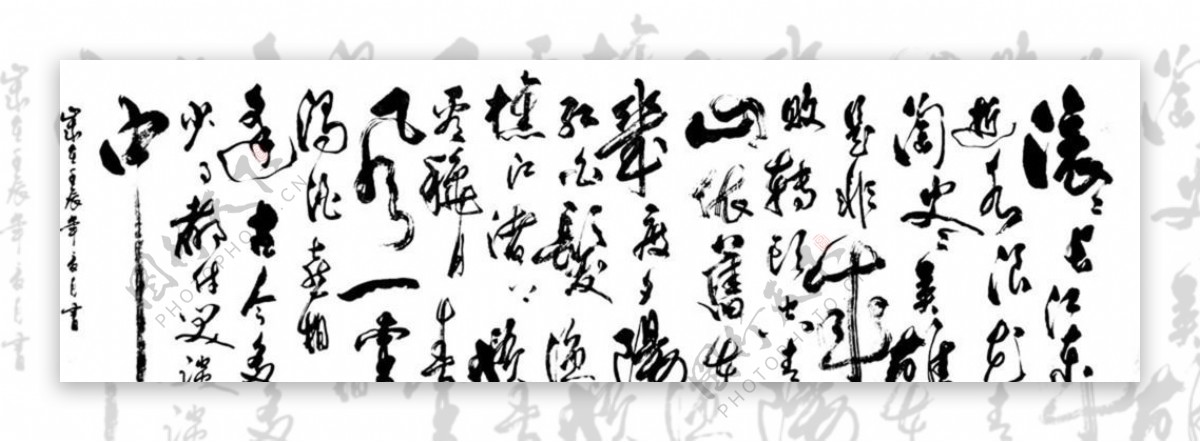 滚々长江东
逝水浪花
淘尽英雄
是非成
败转头空青
山依旧在
幾度夕陽
红白髮渔
樵江渚上惯
看秋月春
风一壶
浊酒喜相
逢古今多
少事都付笑谈
中
岁在壬辰年书
图行天下
PHOTOPHOTO.CN